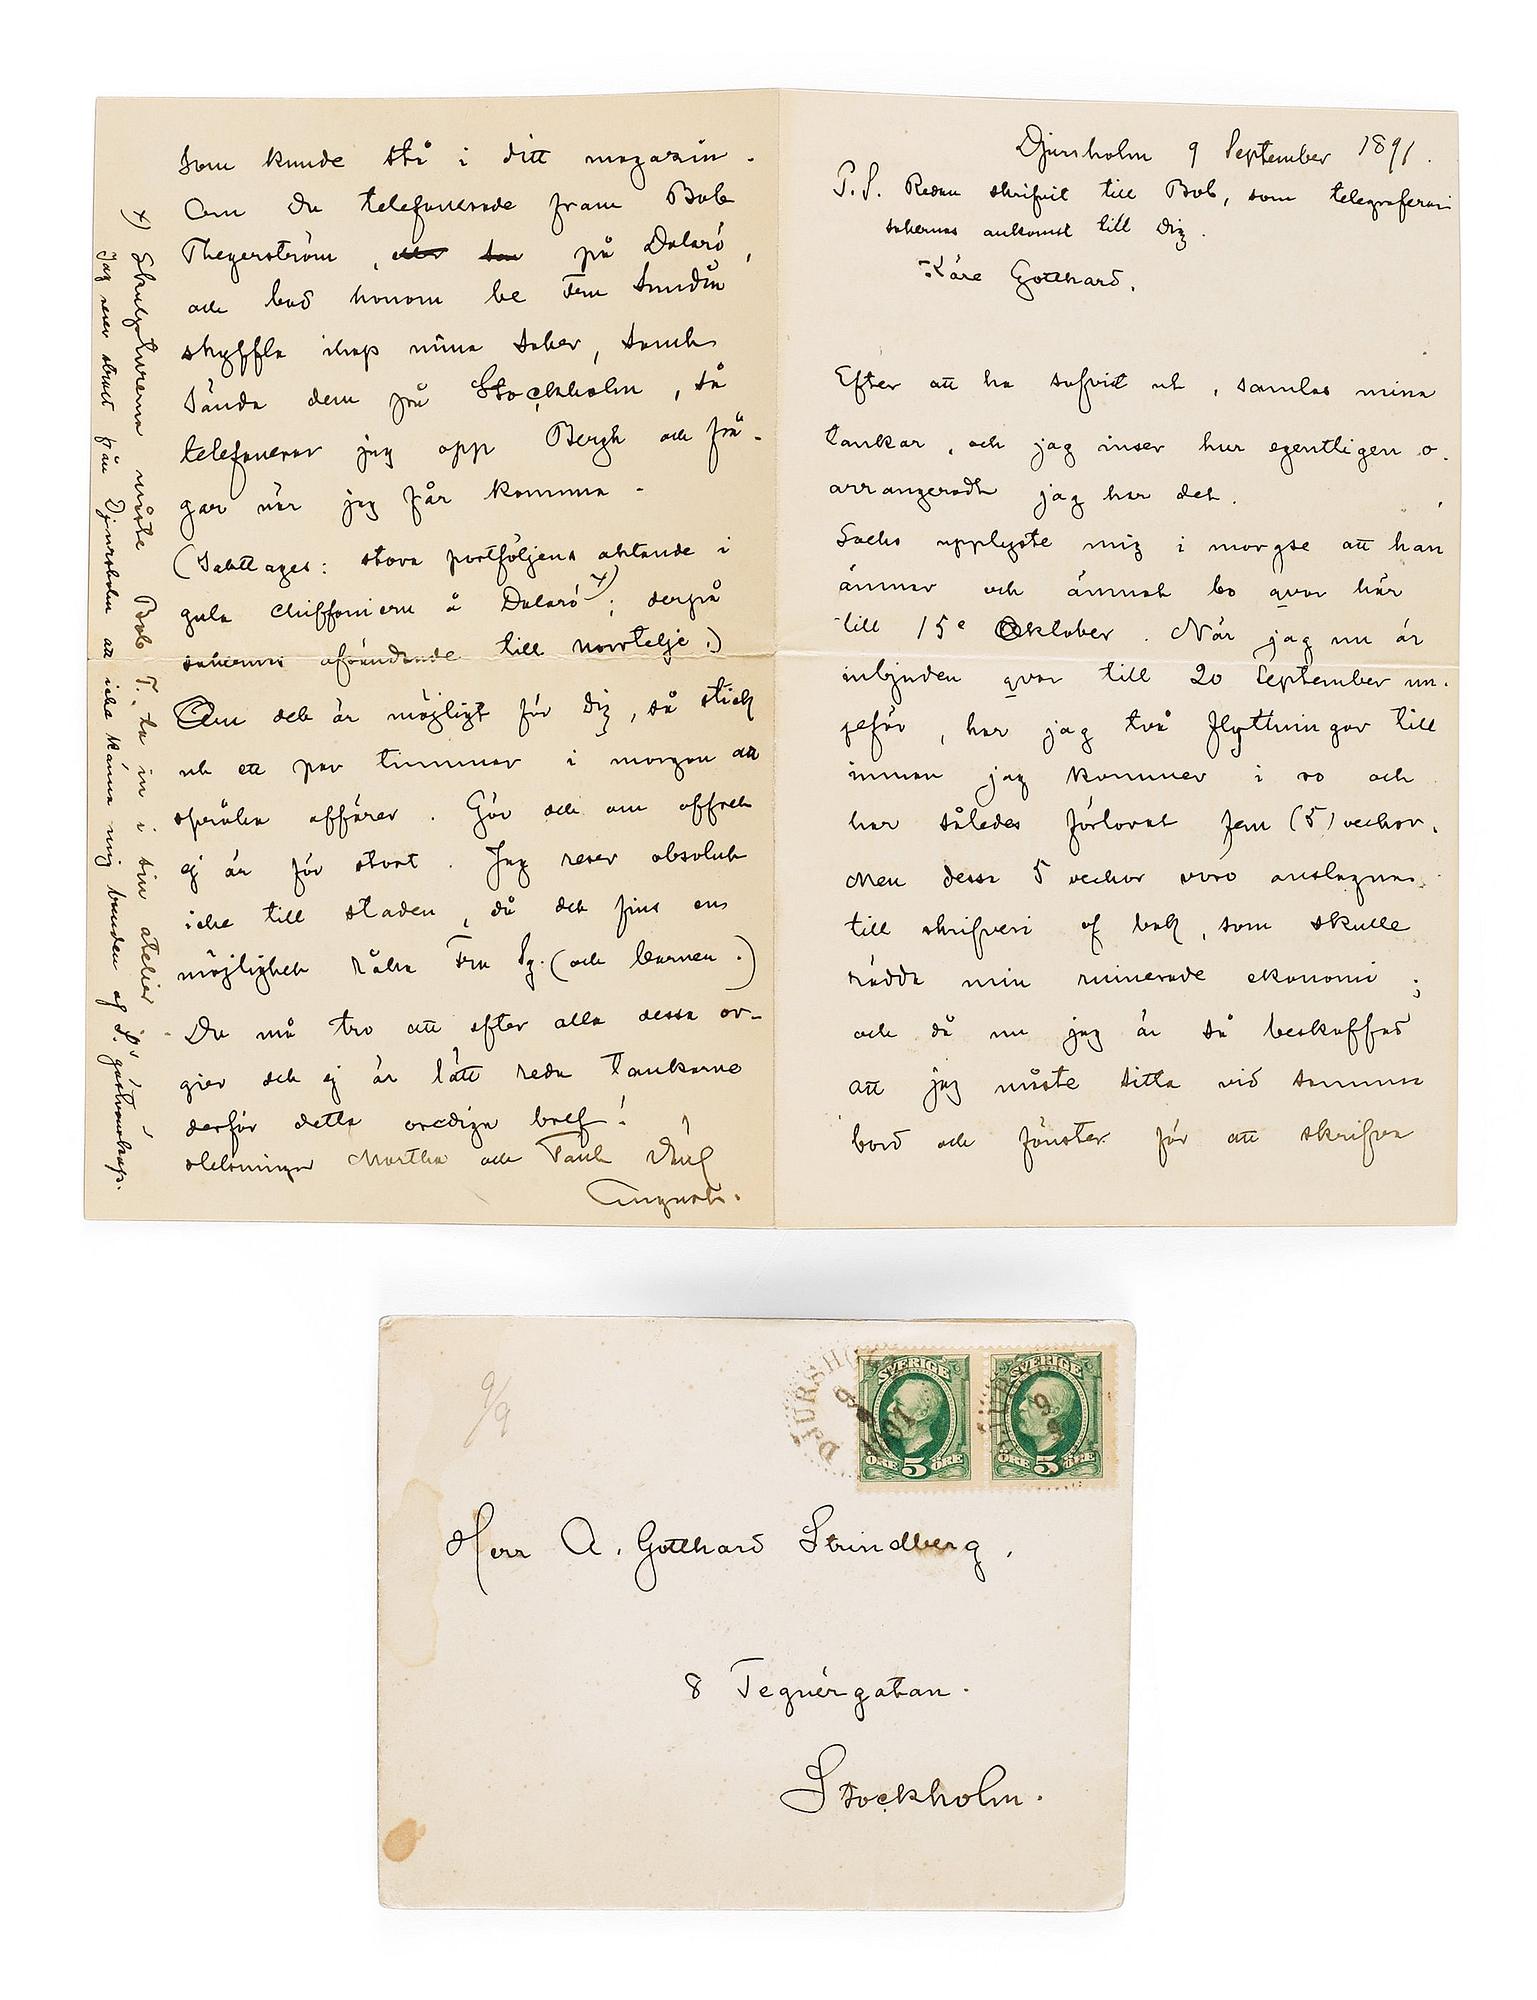 Djursholm 9 September 1891.
P.S. Redan skrifvit till Bob, som telegraferar
sakernas ankomst till Dig.
Käre Gotthard,
Efter att ha sofvit ut, samlas mina
tankar, och jag inser hur egentligen o-
arrangeradt jag har det.
Sachs upplyste mig i morgse att han
ämnar och ämnat bo qvar här
till 15e Oktober. När jag nu är
inbjuden qvar till 20 September un-
gefär, har jag två flyttningar till
innan jag kommer i ro och
har således förlorat fem (5) veckor.
Men dessa 5 veckor voro anslagna
till skrifveri af bok, som skulle
rädda min ruinerade ekonomi;
och då nu jag är så beskaffad
att jag måste sitta vid samma
bord och fönster för att skrifva
som kunde stå i ditt magasin.
Om Du telefonerade fram Bob
Thegerström, på Dalarö,
och bad honom be Fru Sundin
skyffla ihop mina saker, samt
sända dem på Stockholm, så
telefonerar jag opp Bergh och frå-
gar när jag får komma.
(Iakttages: stora portföljens aktande i
gula chiffoniern å Dalarö x); derpå
sakernas afsändande till Norrtelje.)
Om det är möjligt för Dig, så stick
ut ett par timmar i morgon att
språka affärer. Gör det om offret
ej är för stort. Jag reser absolut
icke till staden, då det fins en
möjlighet råka Fru Sg. (och barnen.)
Du må tro att efter alla dessa or-
gier det ej är lätt reda tankarne
derför detta orediga bref!
Helsningar Martha och Tant
August.
x) Skulpturerna måste Bob T. ta in i sin atelier
Jag reser strax från Djursholm att icke känna mig bunden af S:s gästvänskap.
9/9
DJURSHOLM
9
9
1891
SVERIGE
5
ÖRE ÖRE
SVERIGE
5
ÖRE ÖRE
DJUR
9
9
Herr A. Gotthard Strindberg,
8 Tegnérgatan.
Stockholm.